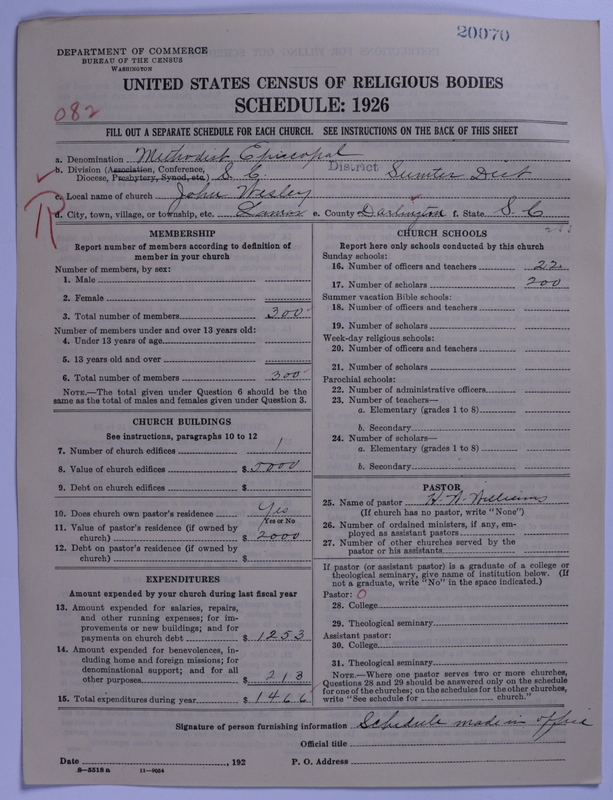 20070
DEPARTMENT OF COMMERCE
BUREAU OF THE CENSUS
WASHINGTON
UNITED STATES CENSUS OF RELIGIOUS BODIES
SCHEDULE: 1926
082
FILL OUT A SEPARATE SCHEDULE FOR EACH CHURCH. SEE INSTRUCTIONS ON THE BACK OF THIS SHEET
a. Denomination Methodist Episcopal
b. Division (Association, Conference, Diocese, Presbytery, Synod, etc.) S. C. District Sumter Dist
c. Local name of church John Wesley
R
d. City, town, village, or township, etc. Lamar e. County Darlington f. State S. C.
MEMBERSHIP
Report number of members according to definition of
member in your church
Number of members, by sex:
1. Male
2. Female
3. Total number of members 300
Number of members under and over 13 years old:
4. Under 13 years of age
5. 13 years old and over
6. Total number of members 300
NOTE.—The total given under Question 6 should be the
same as the total of males and females given under Question 3.
CHURCH BUILDINGS
See instructions, paragraphs 10 to 12
7. Number of church edifices 1
8. Value of church edifices $ 5000
9. Debt on church edifices $
10. Does church own pastor's residence Yes
Yes or No
11. Value of pastor's residence (if owned by
church) $ 2000
12. Debt on pastor's residence (if owned by
church) $
EXPENDITURES
Amount expended by your church during last fiscal year
13. Amount expended for salaries, repairs,
and other running expenses; for im-
provements or new buildings; and for
payments on church debt $ 1253
14. Amount expended for benevolences, in-
cluding home and foreign missions; for
denominational support; and for all
other purposes $ 213
15. Total expenditures during year $ 1466
CHURCH SCHOOLS
Report here only schools conducted by this church
Sunday schools:
16. Number of officers and teachers 22
17. Number of scholars 200
Summer vacation Bible schools:
18. Number of officers and teachers
19. Number of scholars
Week-day religious schools:
20. Number of officers and teachers
21. Number of scholars
Parochial schools:
22. Number of administrative officers
23. Number of teachers—
a. Elementary (grades 1 to 8)
b. Secondary
24. Number of scholars—
a. Elementary (grades 1 to 8)
b. Secondary
PASTOR
25. Name of pastor Williams
(If church has no pastor, write "None")
26. Number of ordained ministers, if any, em-
ployed as assistant pastors
27. Number of other churches served by the
pastor or his assistants
If pastor (or assistant pastor) is a graduate of a college or
theological seminary, give name of institution below. (If
not a graduate, write "No" in the space indicated.)
Pastor: 0
28. College
29. Theological seminary
Assistant pastor:
30. College
31. Theological seminary
NOTE.—Where one pastor serves two or more churches,
Questions 28 and 29 should be answered only on the schedule
for one of the churches; on the schedules for the other churches,
write "See schedule for church."
Signature of person furnishing information Schedule made in office
Official title
Date , 192 P. O. Address
8—5518 a 11—9054